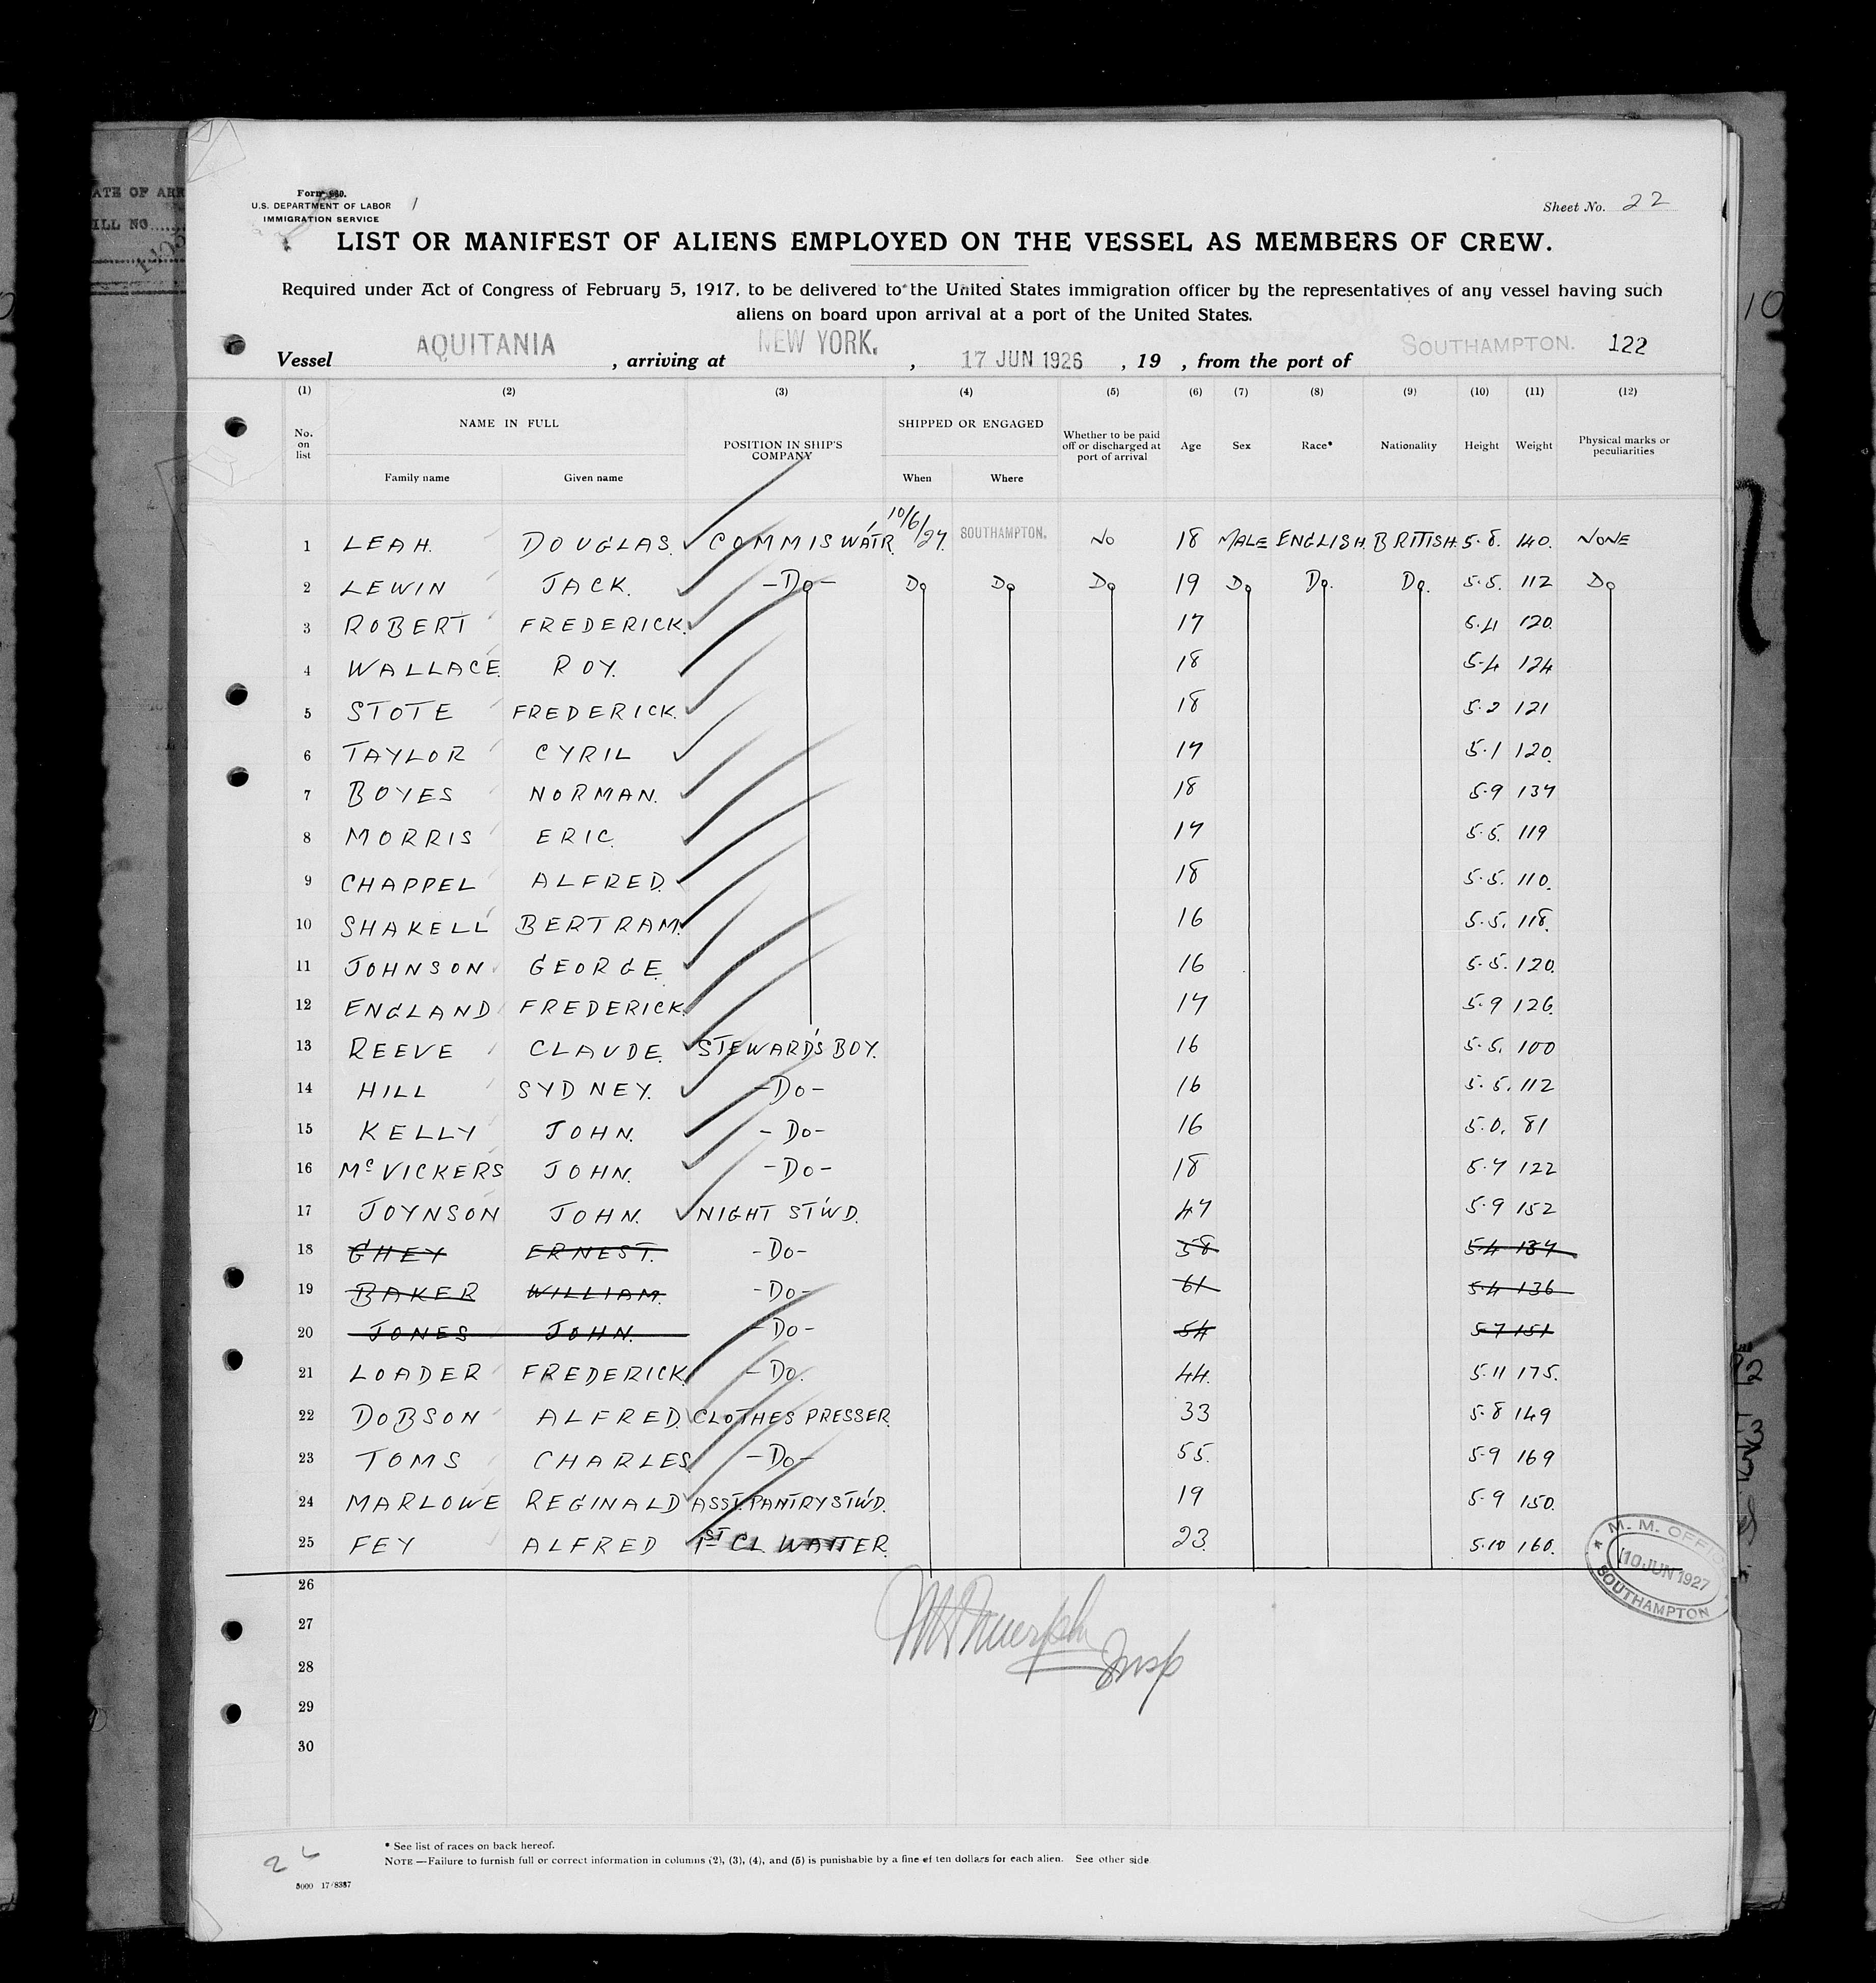 ATE OF ARR
ILL NO.....
U.S. DEPARTMENT OF LABOR
IMMIGRATION SERVICE
Sheet No. 22
LIST OR MANIFEST OF ALIENS EMPLOYED ON THE VESSEL AS MEMBERS OF CREW.
Required under Act of Congress of February 5, 1917, to be delivered to the United States immigration officer by the representatives of any vessel having such
aliens on board upon arrival at a port of the United States.
Vessel AQUITANIA, arriving at NEW YORK., 17 JUN 1926, 19 , from the port of SOUTHAMPTON. 122
(1) (2) (3) (4) (5) (6) (7) (8) (9) (10) (11) (12)
No. on list NAME IN FULL POSITION IN SHIP'S COMPANY SHIPPED OR ENGAGED Whether to be paid off or discharged at port of arrival Age Sex Race* Nationality Height Weight Physical marks or peculiarities
Family name Given name When Where
1 LEAH. DOUGLAS. COMMIS WATR. 10/6/27. SOUTHAMPTON. NO 18 MALE ENGLISH. BRITISH. 5.8. 140. NONE
2 LEWIN JACK. -Do- Do Do Do 19 Do Do. Do. 5.5. 112 Do
3 ROBERT FREDERICK. 17 5.4 120.
4 WALLACE. ROY. 18 5.4 124
5 STOTE FREDERICK. 18 5.2 121
6 TAYLOR CYRIL 17 5.1 120.
7 BOYES NORMAN. 18 5.9 137
8 MORRIS ERIC. 17 5.5. 119
9 CHAPPEL ALFRED. 18 5.5. 110.
10 SHAKELL BERTRAM. 16 5.5. 118.
11 JOHNSON GEORGE. 16 5.5. 120.
12 ENGLAND FREDERICK. 17 5.9 126.
13 REEVE CLAUDE. STEWARD'S BOY. 16 5.5. 100
14 HILL SYDNEY. -Do- 16 5.5. 112
15 KELLY JOHN. -Do- 16 5.0. 81
16 McVICKERS JOHN. -Do- 18 5.7 122
17 JOYNSON JOHN. NIGHT ST'WD. 47 5.9 152
18 GHEY ERNEST. -Do- 58 5.4 137
19 BAKER WILLIAM. -Do- 61 5.4 136
20 JONES JOHN. -Do- 54 5.7 151
21 LOADER FREDERICK -Do. 44. 5.11 175.
22 DOBSON ALFRED. CLOTHES PRESSER. 33 5.8 149
23 TOMS CHARLES -Do- 55. 5.9 169
24 MARLOWE REGINALD ASST. PANTRY ST'WD. 19 5.9 150.
25 FEY ALFRED 1ST CL. WAITER. 23. 5.10 160.
26
27
28
29
30
M. M. OFFICE
10 JUN 1927
SOUTHAMPTON
Insp
* See list of races on back hereof.
NOTE —Failure to furnish full or correct information in columns (2), (3), (4), and (5) is punishable by a fine of ten dollars for each alien. See other side.
5000 17/8337